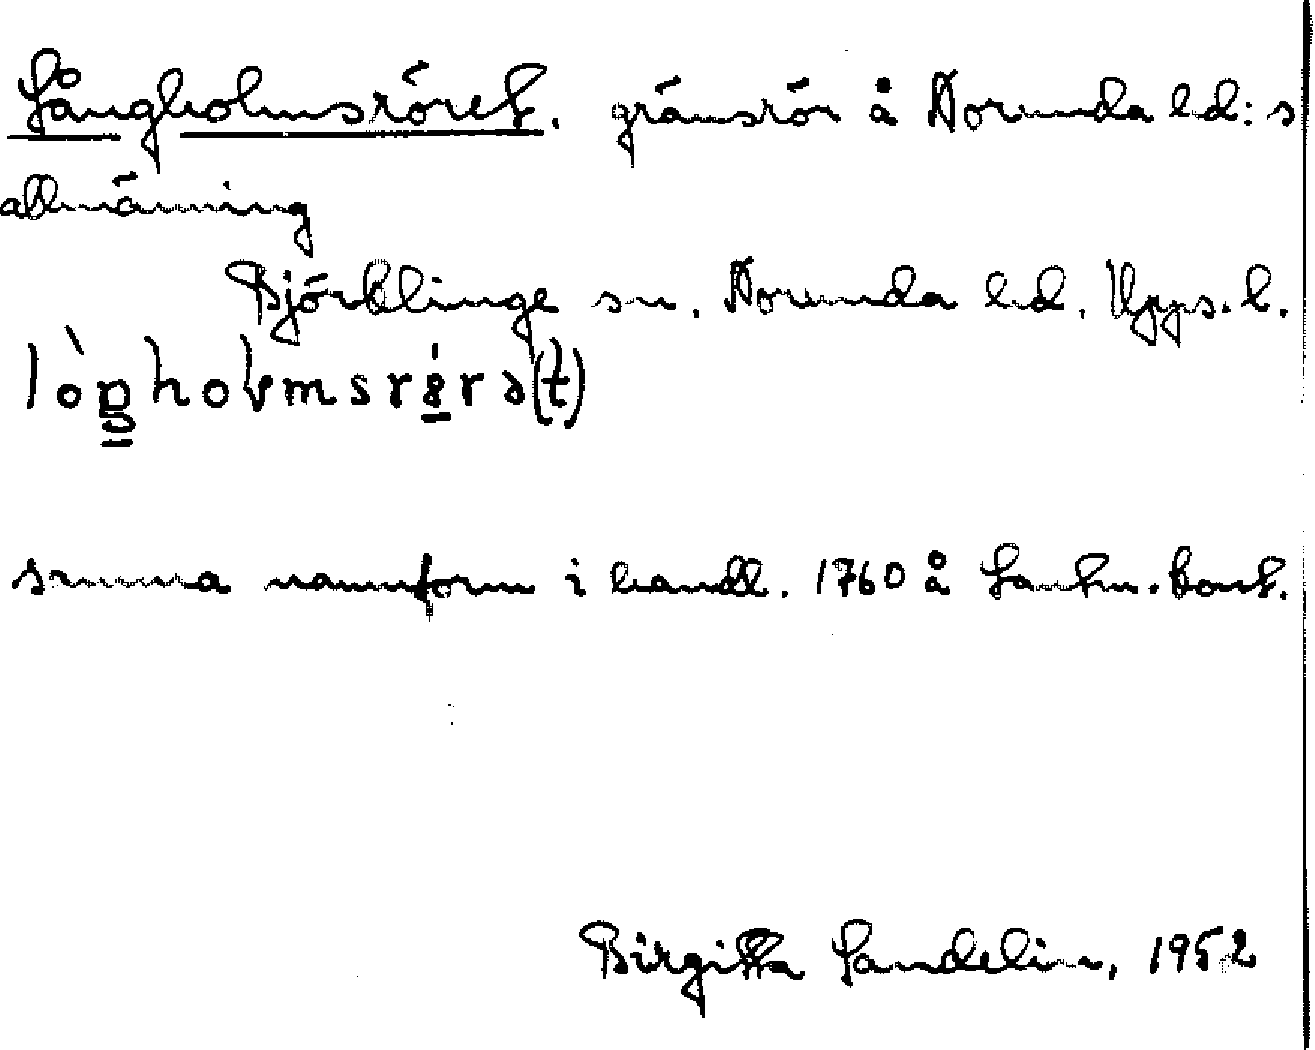 Långholmsröret. gränsrör å Norunda hd:s
allmänning
Björklinge sn. Norunda hd. Upps. l.
samma namnform i handl. 1760 å Lantm.kont.
Birgitta Sandelin, 1952